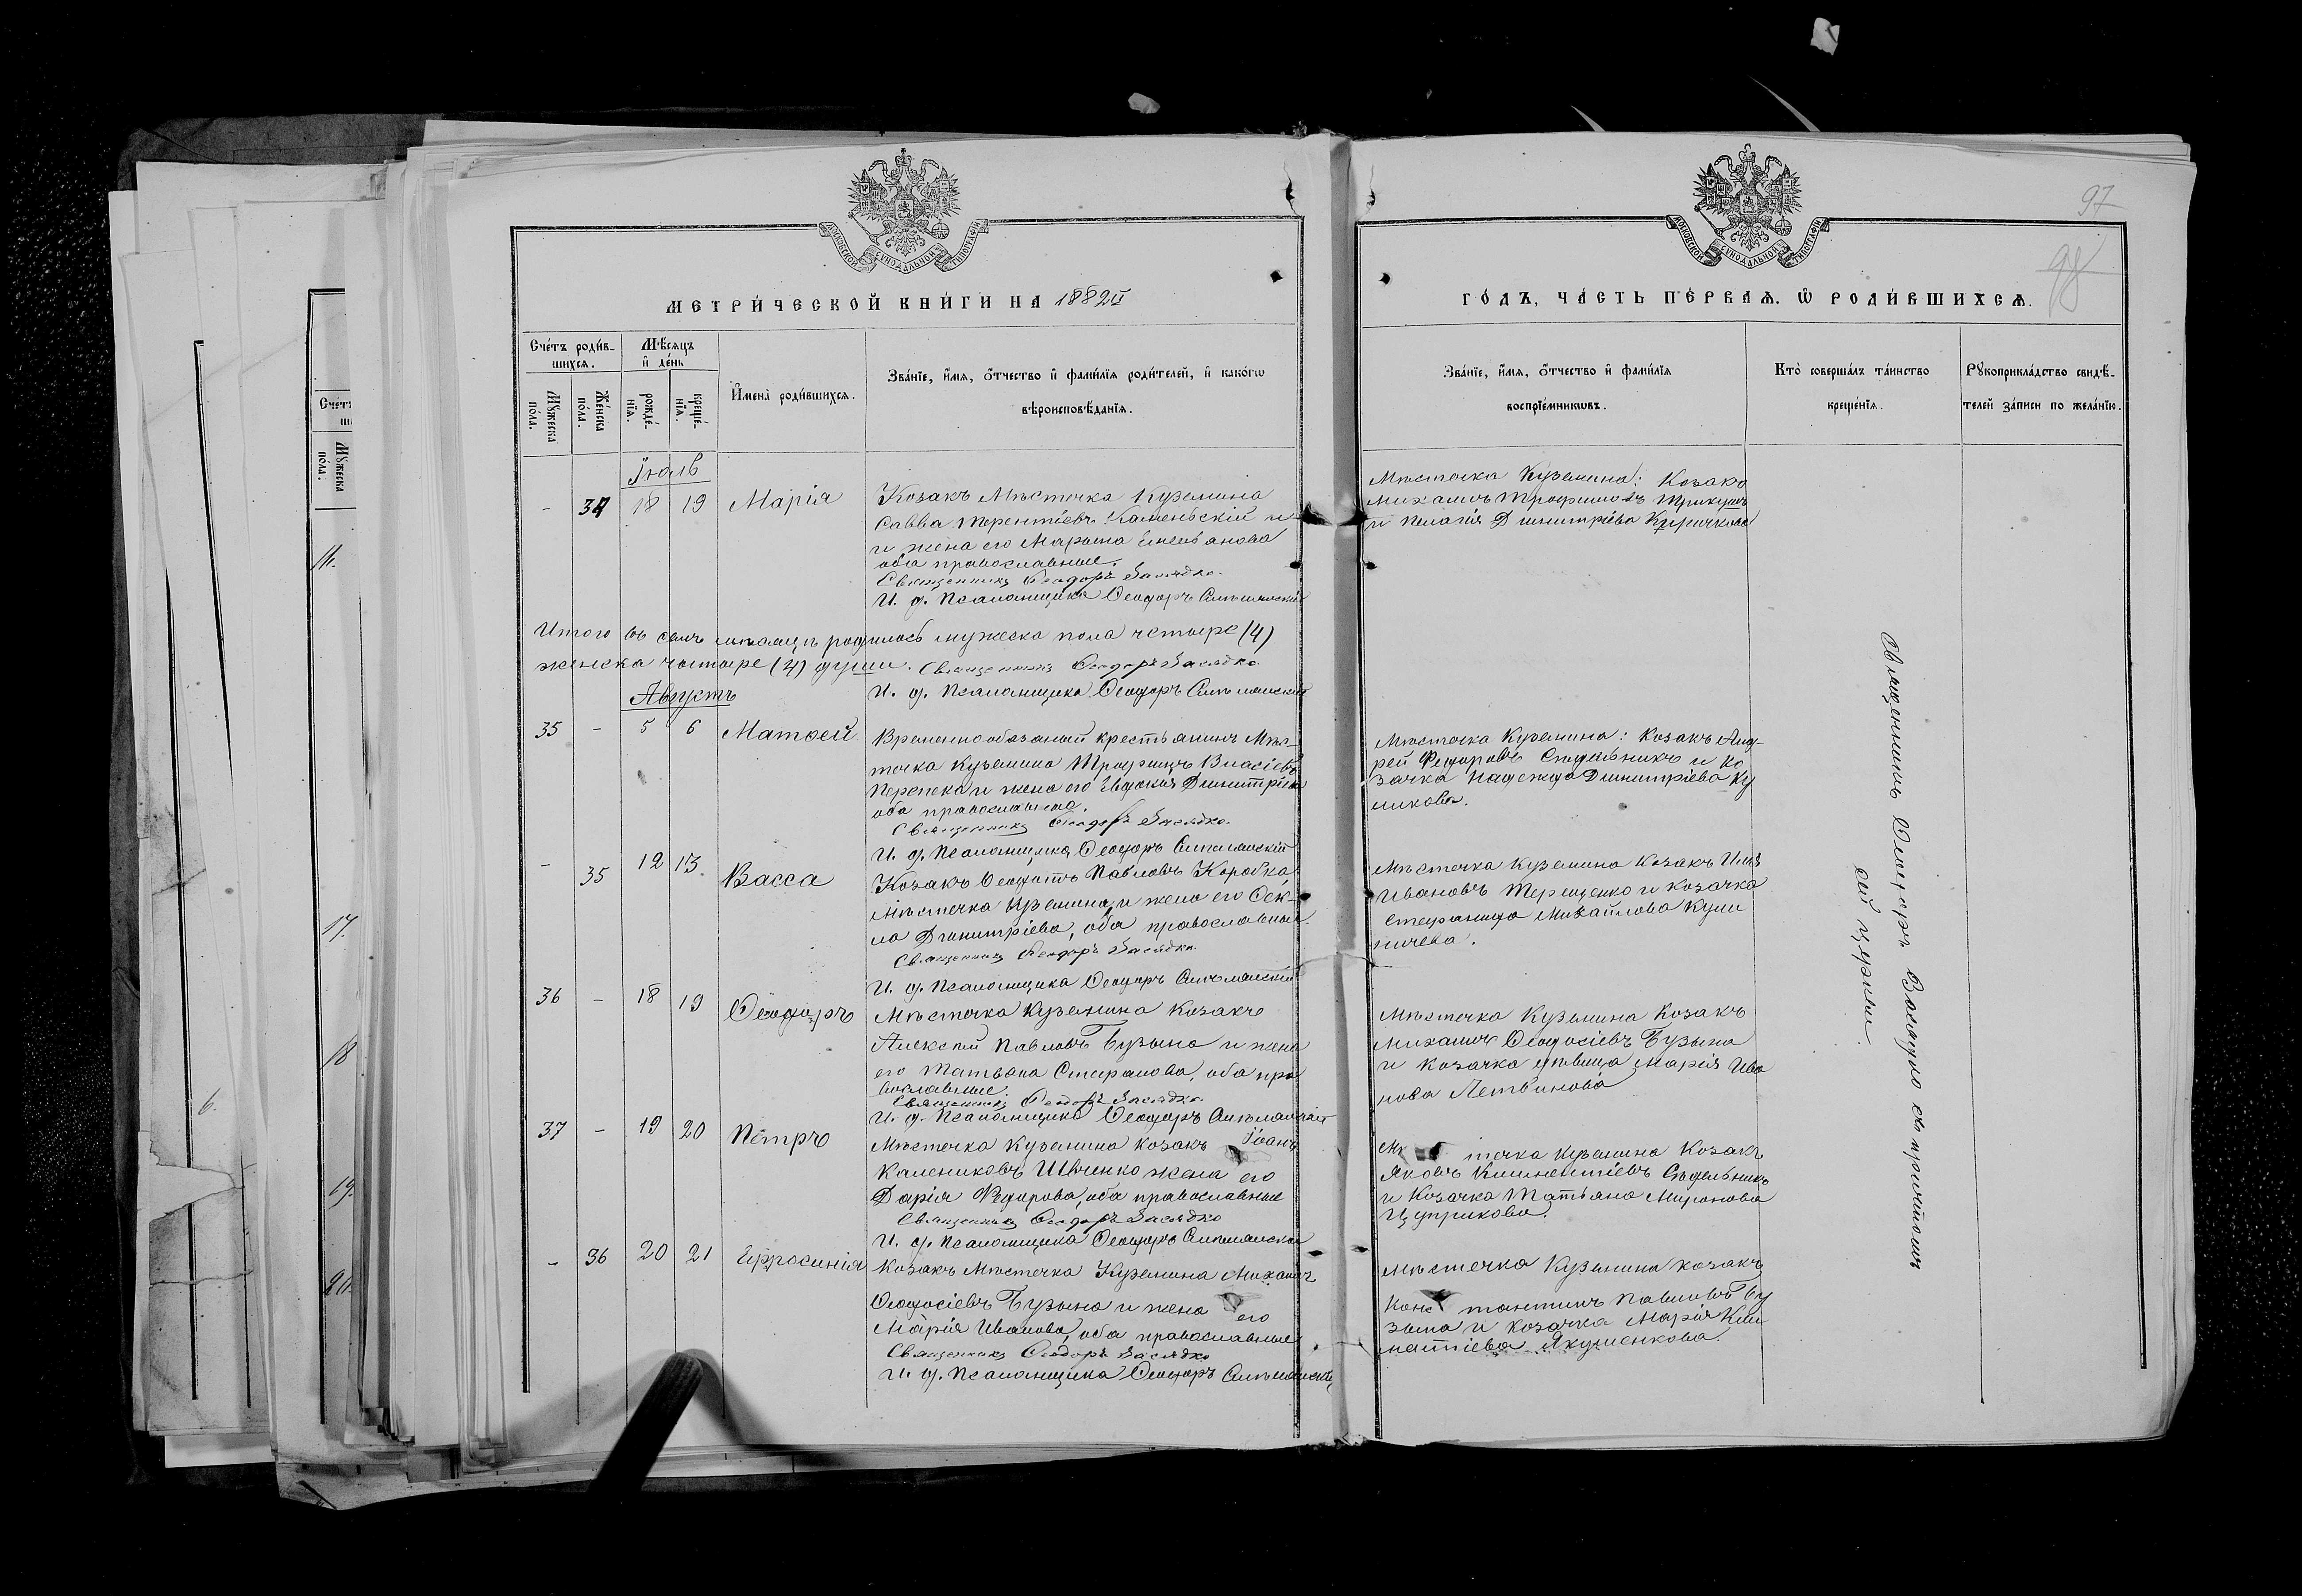 97
98
МЕТРИ́ЧЕСКОЙ КНИ́ГИ НА 1882й
ГО́ДЪ, ЧА́СТЬ ПЕ́РВАЯ, Ѿ РОДИ́ВШИХСЯ.
Сче́тъ роди́в-
шихся.
Мѣ́сяцъ
и де́нь
Имена̀ роди́вшихся.
Зва́нїе, и́мя, о́тчество и фами́лїя роди́телей, и како́гѡ
вѣроисповѣ́данїя.
Мꙋ́жеска по́ла.
Же́нска по́ла.
рожде́-нїя.
креще́-нїя.
Зва́нїе, и́мя, о́тчество и фами́лїя
воспрїе́мникѡвъ.
Кто̀ соверша́лъ та́инство
креще́нїя.
Рꙋкоприкла́дство свидѣ́-
телей за́писи по жела́нїю.
Іюль
- 34 18 19 Марія
Козакъ Мѣстечка Куземина
Савва Терентіевъ Каменьскій и
и жена его Марѳа Емельянова
оба православные.
Священникъ Ѳеодоръ Засядко.
И. д. Псаломщика Ѳеодоръ
Мѣстечка Куземина: Козакъ
Михаилъ Трофимовъ
и Пелагія Димитріева Кириčкова
Итого въ семъ мѣсяцѣ родилось мужеска пола четыре (4)
женска четыре (4) души. Священникъ Ѳеодоръ Засядко.
И. д. Псаломщика Ѳеодоръ
Августъ
35 - 5 6 Матѳей
Временнообязаный крестьянинъ Мѣс-
точка Куземина Трофимъ Власіевъ
Перепека и жена его Евдокія Димитріева
оба православные.
Священникъ Ѳеодоръ Засядко.
И. д. Псаломщика Ѳеодоръ
Мѣстечка Куземина: Козакъ Анд-
рей Федоровъ Сѣдельникъ и ко
зачка Надежда Димитріева Ку
ликова.
- 35 12 13. Васса
Козакъ Ѳеодотъ Павловъ Коробка
Мѣстечка Куземина, и жена его Ѳек-
ла Димитріева, оба православные.
Священникъ Ѳеодоръ Засядко.
И. д. Псаломщика Ѳеодоръ
Мѣстечка Куземина Козакъ Илія
Ивановъ Терещенко и козачка
Стефанида Михайлова Кули
ничева.
36 - 18 19 Ѳеодоръ
Мѣстечка Куземина Козакъ
Алексѣй Павловъ Бузына и жена
его Татьяна Стефанова, оба пра
вославные.
Священникъ Ѳеодоръ Засядко.
И. д. Псаломщика Ѳеодоръ
Мѣстечка Куземина Козакъ
Михаилъ Ѳеодосіевъ Бузына
и козачка дѣвица Марія Ива
нова Летвинова
37 - 19 20 Петръ
Мѣстечка Куземина козакъ Іоанъ
Калениковъ Швченко жена его
Дарія Федорова, оба православные
Священникъ Ѳеодоръ Засядко
И. д. Псаломщика Ѳеодоръ
точка Куземина Козакъ
Яковъ Климентіевъ Сѣдельникъ
и Козачка Татьяна Миронова
Цуприкова.
- 36 20 21 Ефросинія
Козакъ Мѣстечка Куземина Михаилъ
Ѳеодосіевъ Бузына и жена его
Марія Иванова, оба православные
Священникъ Ѳеодоръ Засядко
И. д. Псаломщика Ѳеодоръ
Мѣстечка Куземина козакъ
Констонтинъ Павловъ Бу
зына и козачка Марія Кли
ментіева Якименкова.
Священникъ Ѳеодоръ Засядко съ причтомъ
сей церкви.
11.
17.
18
19.
20.
6.